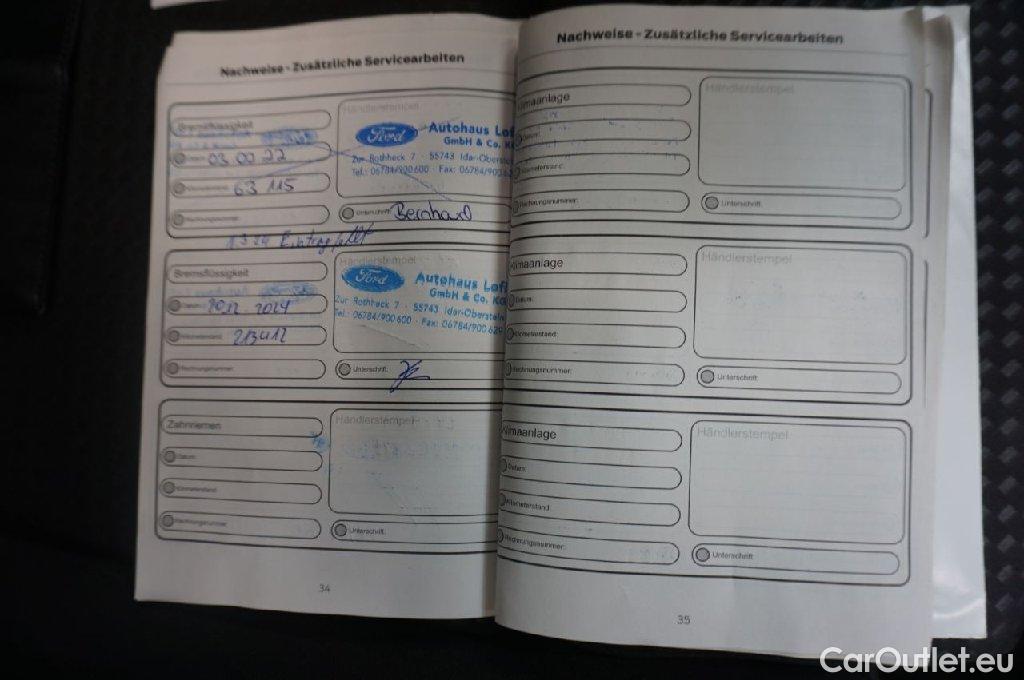 Nachweise - Zusätzliche Servicearbeiten
Bremsflüssigkeit
Händlerstempel
Ford
Autohaus
GmbH & Co.
Zur Rothheck 7 · 55743 Idar-Oberstein
Tel.: 06784/900600 · Fax: 06784/900
Datum:
22
Kilometerstand:
63 115
Rechnungsnummer:
Unterschrift:
Bernhard
Bremsflüssigkeit
Händlerstempel
Ford
Autohaus
GmbH & Co.
Zur Rothheck 7 · 55743 Idar-Oberstein
Tel.: 06784/900600 · Fax: 06784/900
Datum:
12. 2024
Kilometerstand:
213412
Rechnungsnummer:
Unterschrift:
Zahnriemen
Händlerstempel
Datum:
Kilometerstand:
Rechnungsnummer:
Unterschrift:
34
Nachweise - Zusätzliche Servicearbeiten
Klimaanlage
Händlerstempel
Datum:
Kilometerstand:
Rechnungsnummer:
Unterschrift:
Klimaanlage
Händlerstempel
Datum:
Kilometerstand:
Rechnungsnummer:
Unterschrift:
Klimaanlage
Händlerstempel
Datum:
Kilometerstand:
Rechnungsnummer:
Unterschrift:
35
CarOutlet.eu